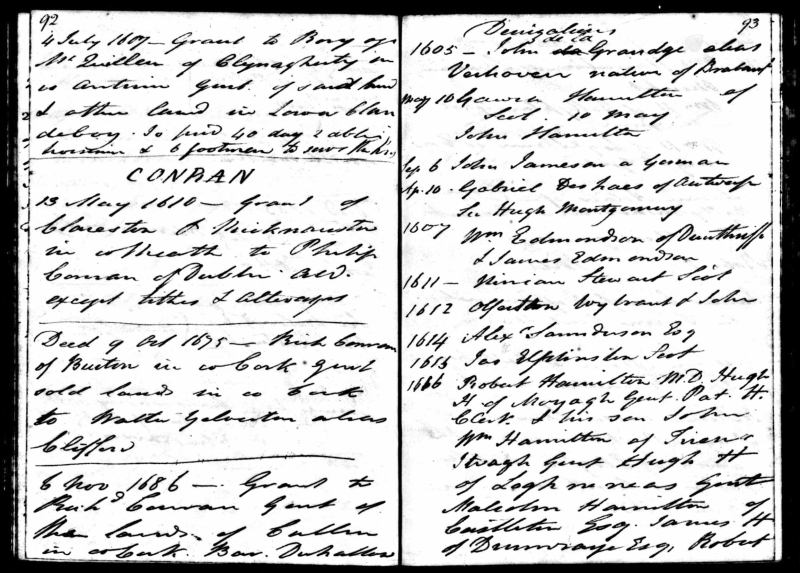 92
4 July 1607 – Grant to Rory og
McQuillen of Clynagherty in
co Antrim Gent. of said
& other land in Lower Clan
deboy. To find 40 day 2 able
horsemen & 6 footmen to serve the
CONRAN
13 May 1610 – Grant of
Clareston &
in co Meath to Philip
Conran of Dublin Ald.
except tithes & Alterages
Deed 9 Oct 1675 – Rich Conran
of Buiton in co Cork Gent
sold lands in co Cork
to Walter alias
Clifford
6 Nov 1686 – Grant to
Richd Conran Gent of
the lands of Cullen
in co Cork. Bar. Duhallow
93
Denizations
1605 – John de la Grandge alias
Verhoven native of Brabant
May 10 Gawen Hamilton of
Scot. 10 May
John Hamilton
Sep 6 John Jameson a German
Ap. 10 – Gabriel Deshaes of Antwerp
Sir Hugh Montgomery
1607 Wm Edmondson of
& James Edmondson
1611 – Ninian Stewart Scot
1612 Wybrant & John
1614 Alexr Saunderson Esq
1615 Jas Elphinston Scot
1616 Robert Hamilton M.D. Hugh
H of Moyagh Gent. Pat. H.
Clerk & his son John
Wm Hamilton of
Gent Hugh H
of Gent
Malcolm Hamilton of
Castleton Esq. James H
of Esq. Robert